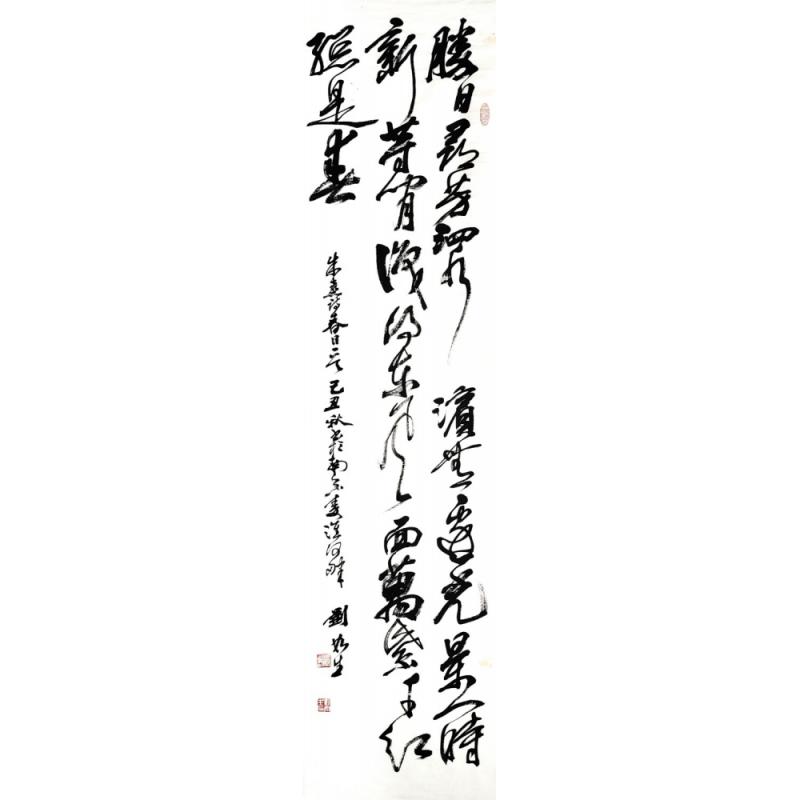 勝日尋芳泗水濱無邊光景一時
新等閒識得東風面萬紫千紅
總是春
朱熹詩春日 己丑秋於南京秦淮河畔 劉